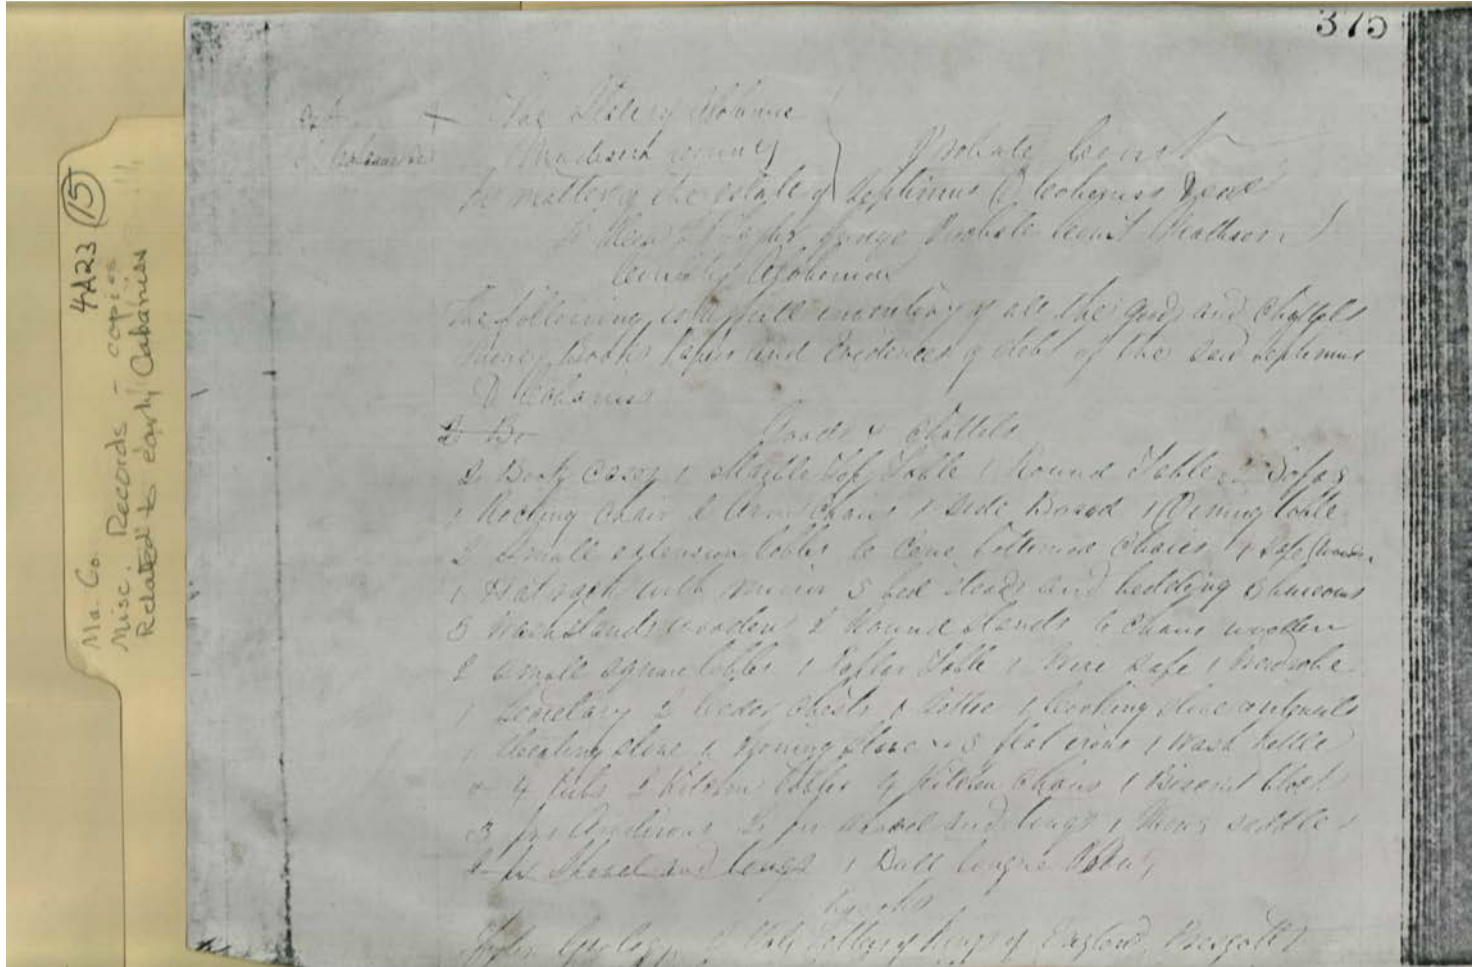 375
4A23 (15)
Ma. Co.
Misc. Records - copies !!
Related to early Cabaniss
The State of Alabama
Madison County
Probate Court
In matter of the estate of Septimus D Cabaniss
Judge Probate Court Madison
County Alabama
The following is a full inventory of all the goods and chattels
Money Books Papers and Evidences of debt of the said Septimus
D Cabaniss
2 Bo
Goods & Chattels
2 Book Cases 1 Marble Top Table 1 Round Table Sofas
1 Rocking Chair 2 Arm chairs 1 Side Board 1 Dining table
2 small extension tables 6 Cane bottomed Chairs 1 safe
1 Hat rack with mirror 5 bed steads and bedding 3 bureaus
5 Wash stands wooden 2 Round stands 6 chairs wooden
2 small square tables 1 Parlor Table 1 Wire safe 1 Wardrobe
1 Secretary 2 Cedar Chests 1 Settee 1 Cooking stove
1 Heating stove 1 stove 5 flat irons 1 Wash Kettle
4 tubs 2 Kitchen tables 4 Kitchen Chairs 1 Biscuit block
3 pr Andirons 2 pr shovel and tongs 1 Mens saddle
2 pr Shovel and tongs 1 Bull tongue Plow
Books
Geology Kings of England Prescotts